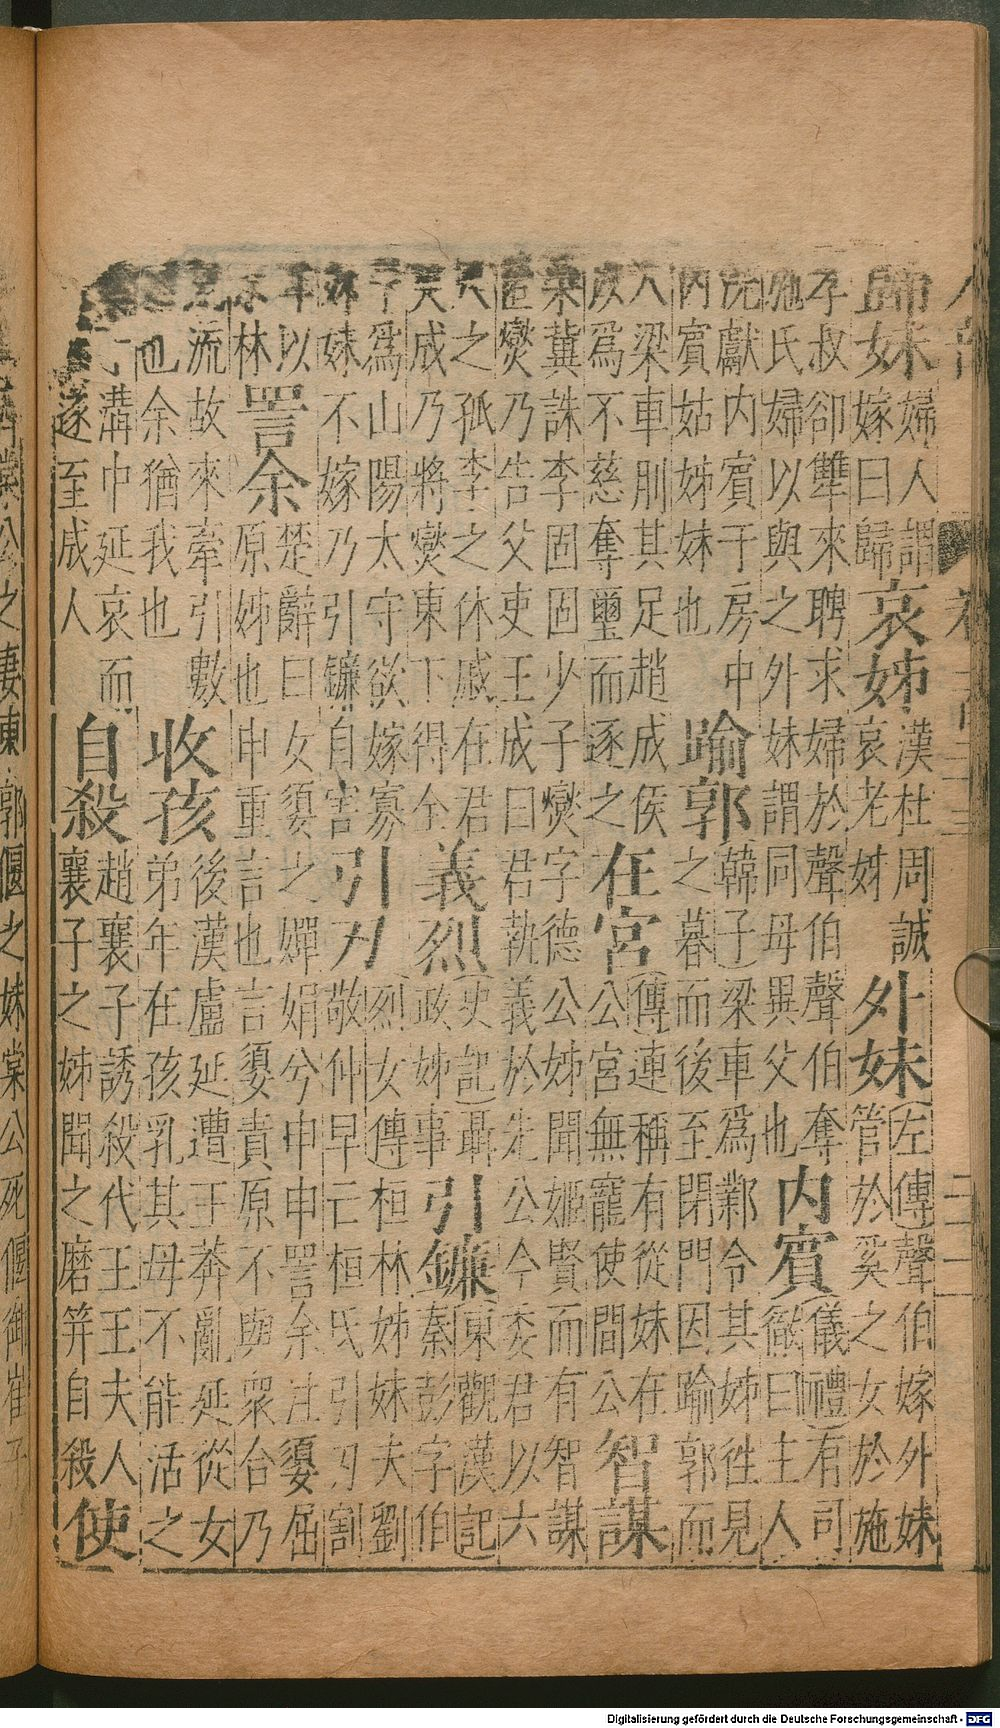 歸妹 婦人謂嫁曰歸 哀姊 漢杜周誠哀老姊 外妹 左傳聲伯嫁外妹管於奚之女於施
孝叔卻犨來聘求婦於聲伯聲伯奪施氏婦以與之外妹謂同母異父也 內賓 儀禮有司徹曰主人
洗獻內賓于房中內賓姑姊妹也 踰郭 韓子梁車為鄴令其姊徃見之暮而後至閉門因踰郭而
入梁車刖其足趙成侯以為不慈奪璽而逐之 在宮 傳連稱有從妹在公宮無寵使間公 智謀
梁冀誅李固固少子燮字德公姊聞姬賢而有智謀匿燮乃告父吏王成曰君執義於先公今委君以六
尺之孤李之休戚在君天成乃將燮東下得全 義烈 史記聶政姊事 引鐮 東觀漢記秦彭字伯
平為山陽太守欲嫁寡姊妹不嫁乃引鐮自害 引刀 烈女傳桓林姊妹夫劉敬仲早亡桓氏引刀割
耳以林 詈余 楚辭曰女須之嬋娟兮申申詈余注媭屈原姊也申重言也言媭責原不與眾合乃
流故來牽引數也余猶我也 收孩 後漢盧延遭王莽亂延從女弟年在孩乳其母不能活之
溝中延哀而遂至成人 自殺 趙襄子誘殺代王王夫人襄子之姊聞之磨笄自殺 使
棠公之妻東郭偃之妹棠公死偃御崔子
Digitalisierung gefördert durch die Deutsche Forschungsgemeinschaft - DFG